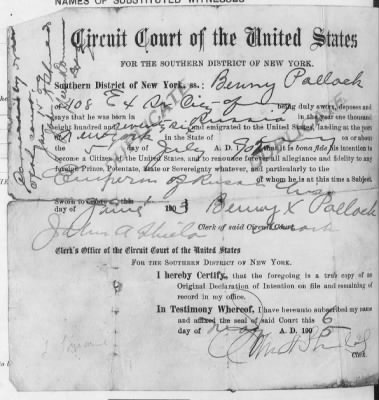 NAMES OF SUBSTITUTED WITNESSES
Circuit Court of the United States
FOR THE SOUTHERN DISTRICT OF NEW YORK.
Southern District of New York, ss.: Benny Pollock
of 408 E 4 St City of being duly sworn, deposes and
says that he was born in Russia in the year one thousand
eight hundred and and emigrated to the United States, landing at the port
of New York in the State of on or about
the 5 day of July A. D. that it is bona fide his intention to
become a Citizen of the United States, and to renounce forever all allegiance and fidelity to any
foreign Prince, Potentate, State or Sovereignty whatever, and particularly to the
Emperor of Russia of whom he is at this time a Subject.
Sworn to this his
day of June 1903 Benny X Pollock
Clerk of said Circuit Court. mark
John A Shields
Clerk's Office of the Circuit Court of the United States
FOR THE SOUTHERN DISTRICT OF NEW YORK.
I hereby Certify, that the foregoing is a true copy of an
Original Declaration of Intention on file and remaining of
record in my office.
In Testimony Whereof, I have hereunto subscribed my name
and affixed the seal of said Court this 6
day of A. D. 190
Clerk.